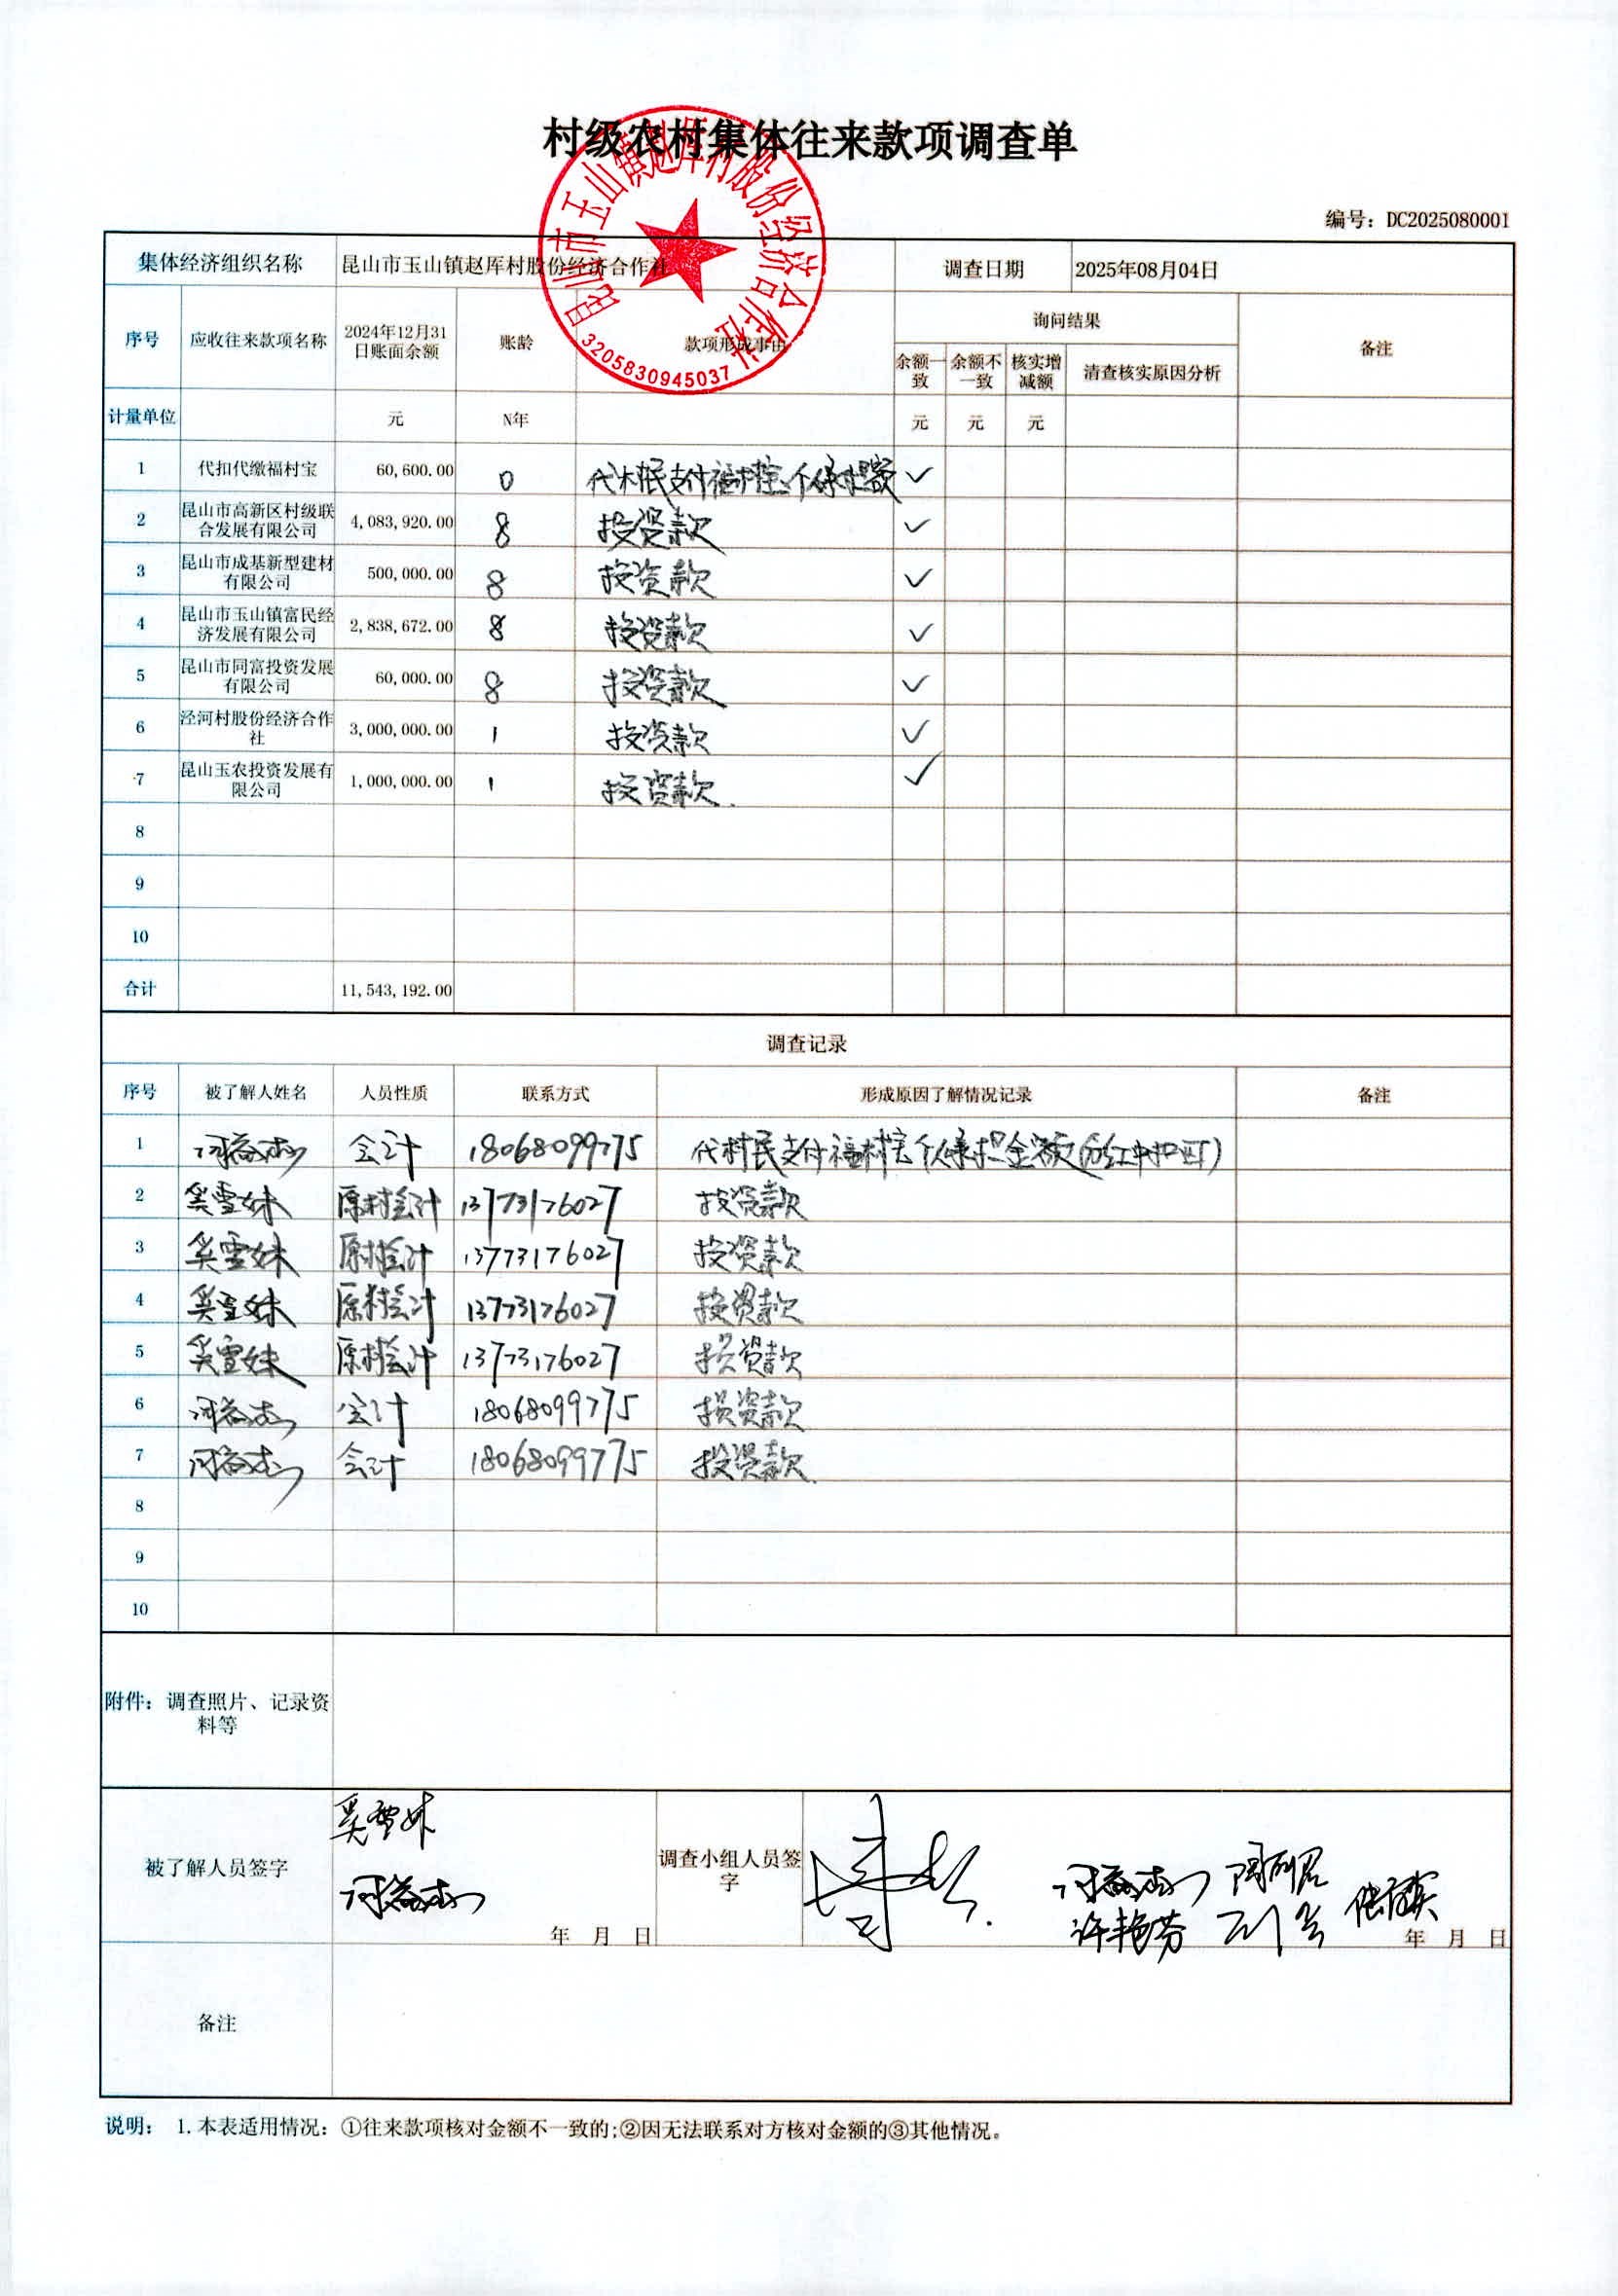 村级农村集体往来款项调查单
昆山市玉山镇赵厍村股份经济合作社
3205830945037
编号：DC2025080001
集体经济组织名称 昆山市玉山镇赵厍村股份经济合作社 调查日期 2025年08月04日
序号 应收往来款项名称 2024年12月31日账面余额 账龄 款项形成事由 询问结果 备注
余额一致 余额不一致 核实增减额 清查核实原因分析
计量单位 元 N年 元 元 元
1 代扣代缴福村宝 60,600.00 0 代村民支付福村宝个人承担额 ✓
2 昆山市高新区村级联合发展有限公司 4,083,920.00 8 投资款 ✓
3 昆山市成基新型建材有限公司 500,000.00 8 投资款 ✓
4 昆山市玉山镇富民经济发展有限公司 2,838,672.00 8 投资款 ✓
5 昆山市同富投资发展有限公司 60,000.00 8 投资款 ✓
6 泾河村股份经济合作社 3,000,000.00 1 投资款 ✓
7 昆山玉农投资发展有限公司 1,000,000.00 1 投资款. ✓
8
9
10
合计 11,543,192.00
调查记录
序号 被了解人姓名 人员性质 联系方式 形成原因了解情况记录 备注
1 会计 18068099775 代村民支付福村宝个人承担金额(分红中扣回)
2 奚雪妹 原村会计 13773176027 投资款
3 奚雪妹 原村会计 13773176027 投资款
4 奚雪妹 原村会计 13773176027 投资款
5 奚雪妹 原村会计 13773176027 投资款
6 会计 18068099775 投资款
7 会计 18068099775 投资款.
8
9
10
附件：调查照片、记录资料等
被了解人员签字 奚雪妹 年 月 日 调查小组人员签字 许艳芬 年 月 日
备注
说明： 1.本表适用情况：①往来款项核对金额不一致的;②因无法联系对方核对金额的③其他情况。